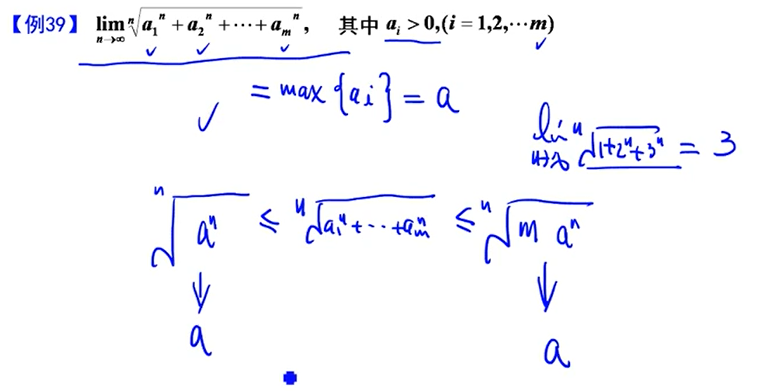 【例39】 lim_{n→∞} ⁿ√(a₁ⁿ + a₂ⁿ + ⋯ + aₘⁿ), 其中 aᵢ > 0, (i = 1,2,⋯m)
= max {ai} = a
lim_{n→∞} ⁿ√(1+2ⁿ+3ⁿ) = 3
ⁿ√(aⁿ) ≤ ⁿ√(a₁ⁿ + ⋯ + aₘⁿ) ≤ ⁿ√(m aⁿ)
↓ ↓
a a